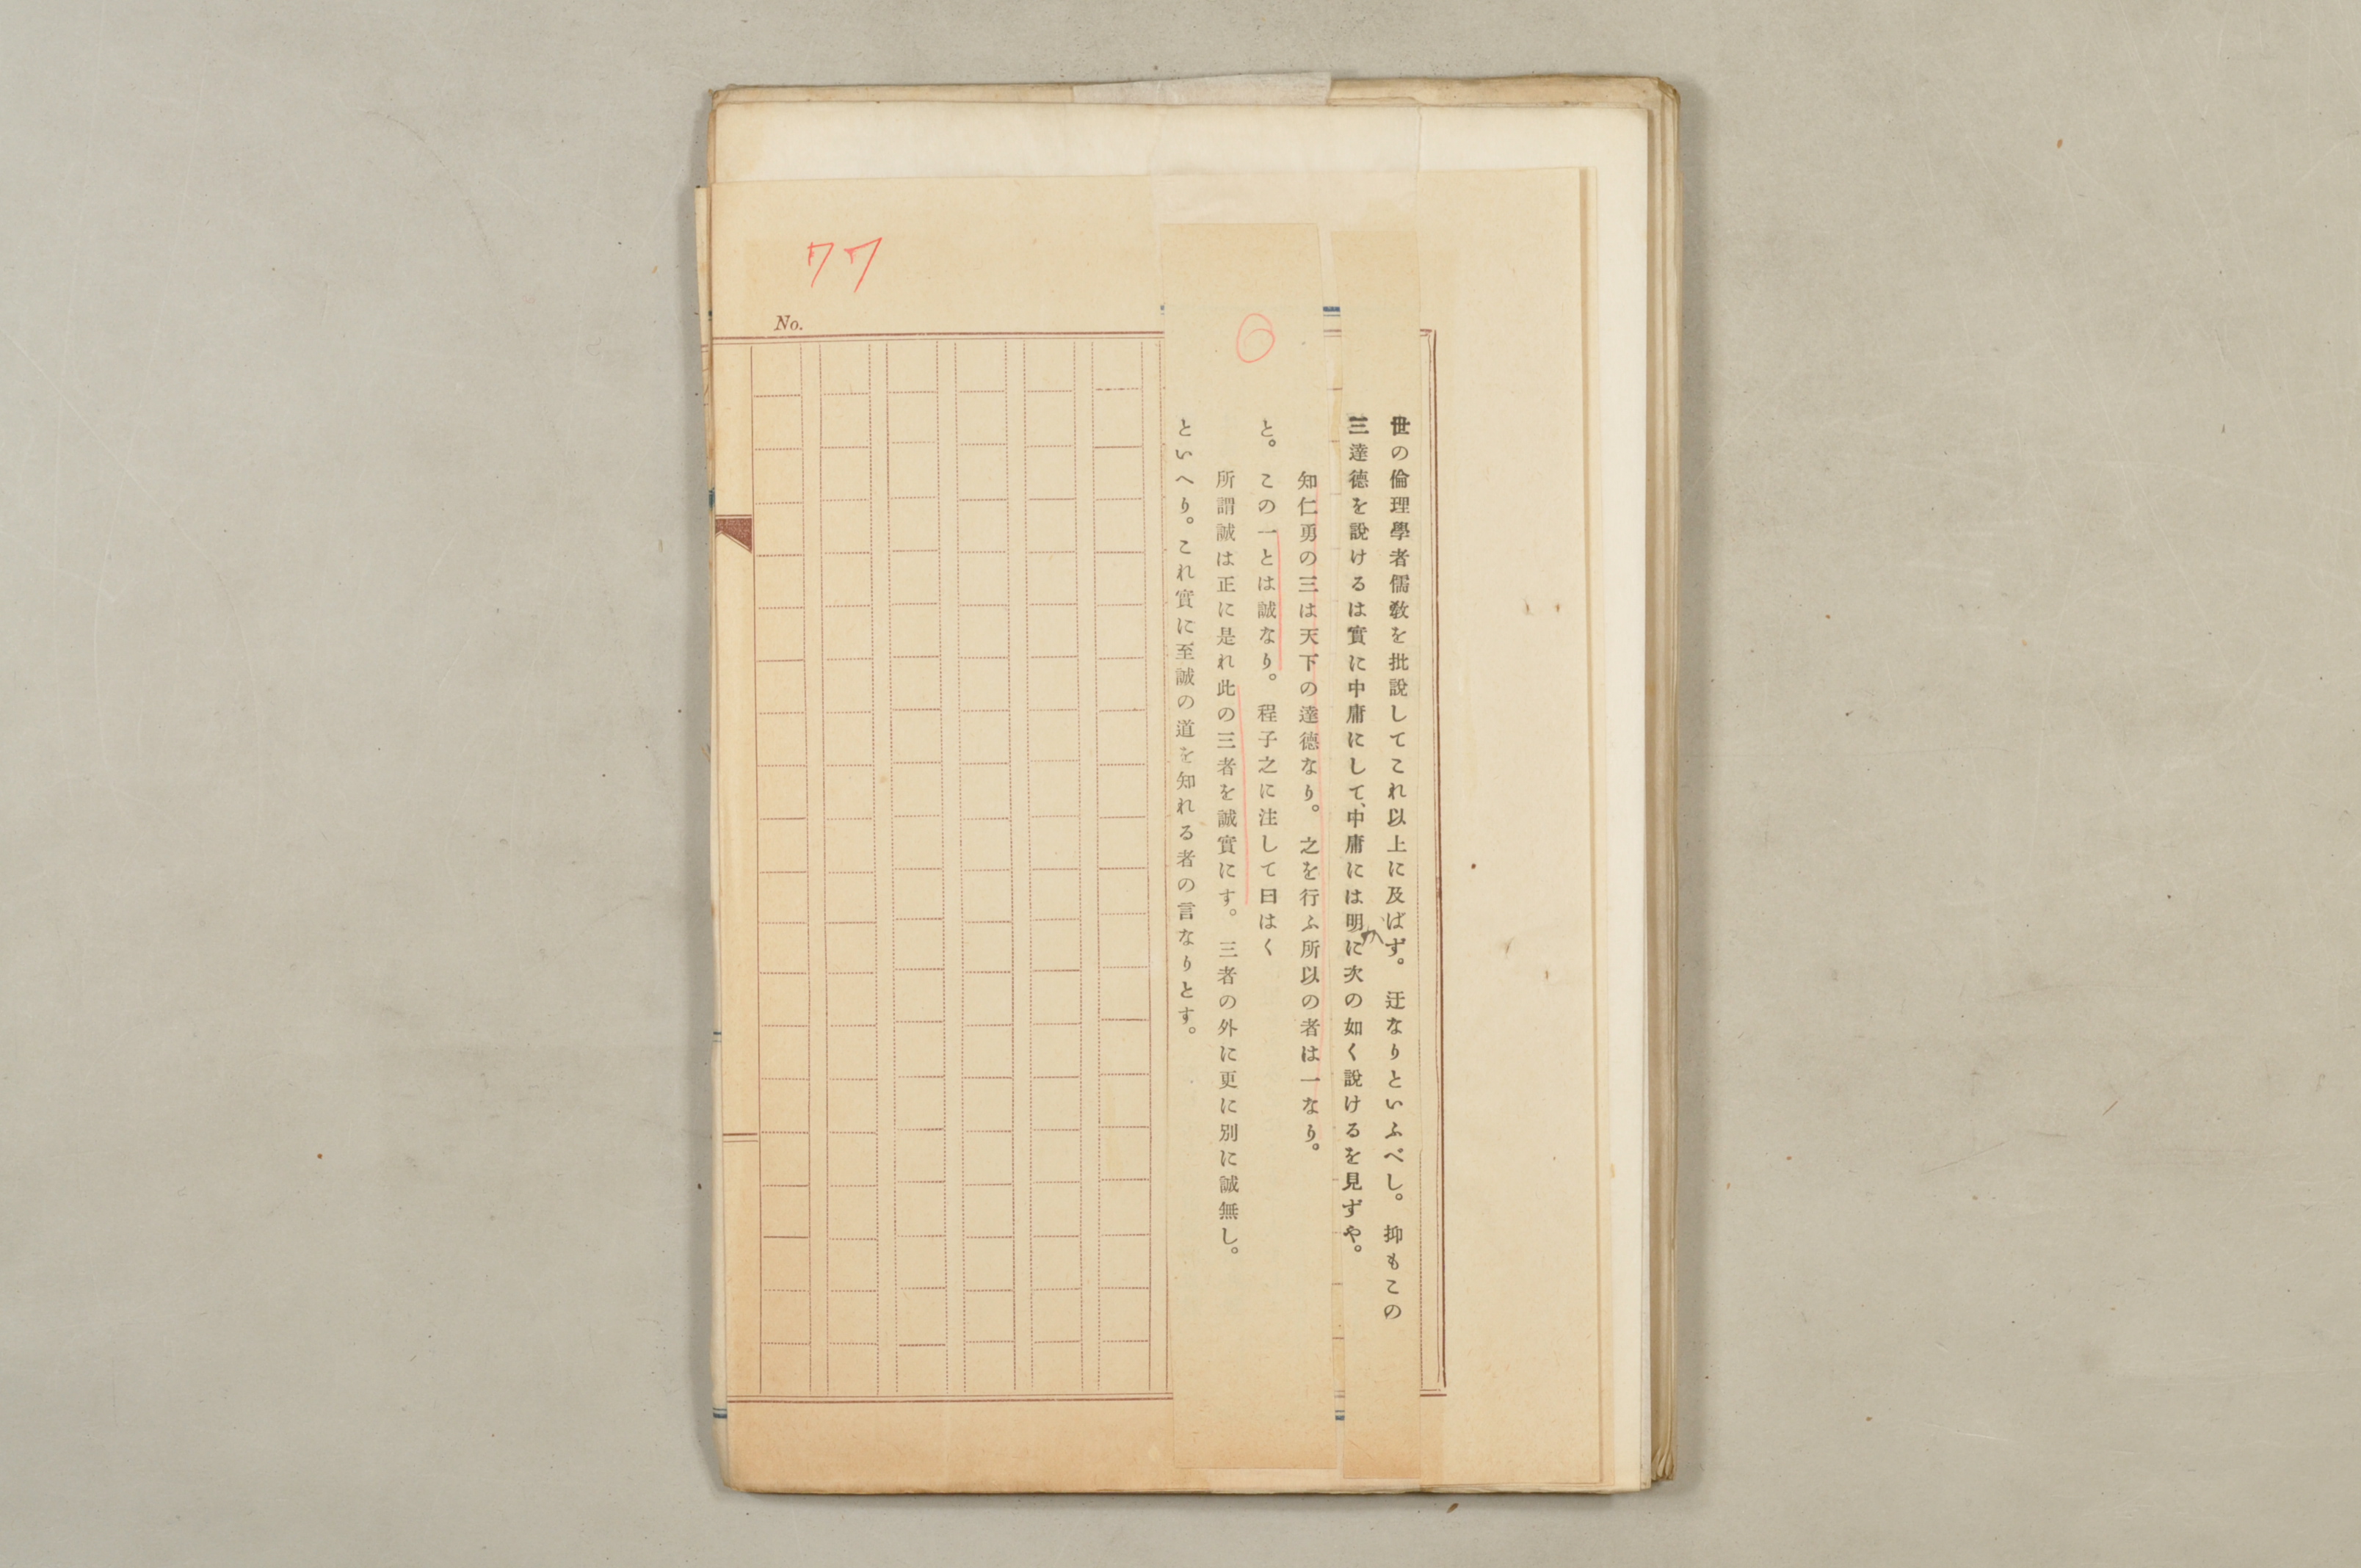 77
No.
世の倫理學者儒敎を批說してこれ以上に及ばず。迂なりといふべし。抑もこの
三達德を說けるは實に中庸にして、中庸には明に次の如く說けるを見ずや。
か
知仁勇の三は天下の達德なり。之を行ふ所以の者は一なり。
と。この一とは誠なり。程子之に注して曰はく
所謂誠は正に是れ此の三者を誠實にす。三者の外に更に別に誠無し。
といへり。これ實に至誠の道を知れる者の言なりとす。